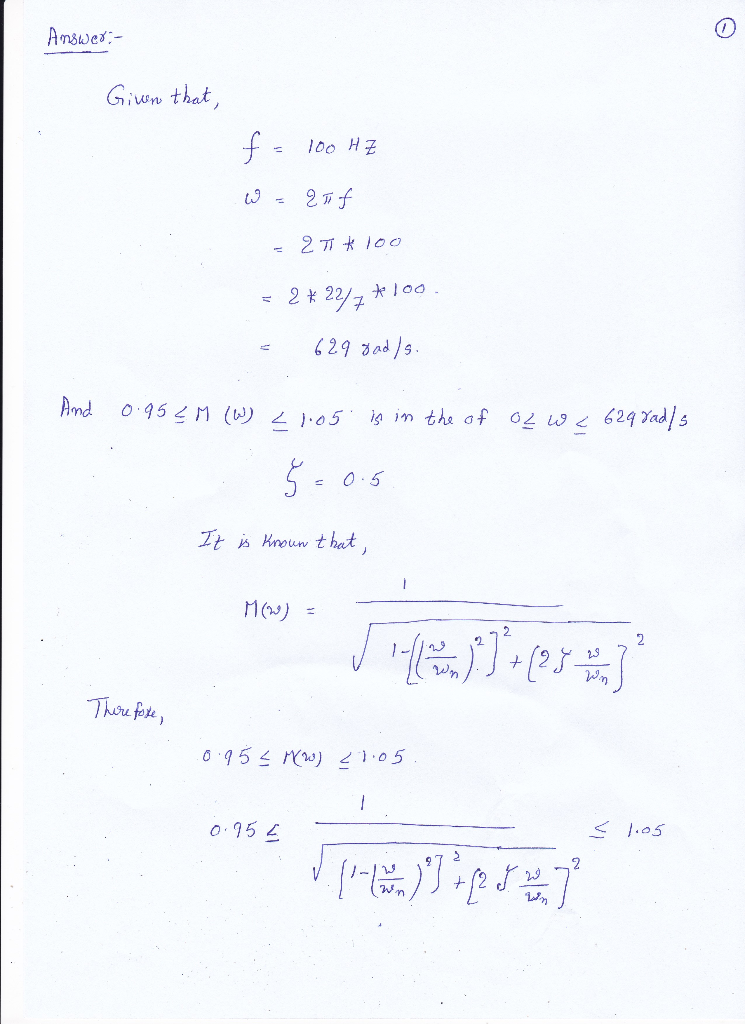 ①
Answer:-
Given that,
f = 100 HZ
ω = 2πf
= 2π * 100
= 2 * 22/7 * 100.
= 629 rad/s.
And 0.95 ≤ M (ω) ≤ 1.05 is in the of 0≤ ω ≤ 629 rad/s
ζ = 0.5
It is known that,
M(ω) = 1 / √ 1-[(ω/ωn)²]² + [2ζ ω/ωn]²
Therefore,
0.95 ≤ M(ω) ≤ 1.05.
0.95 ≤ 1 / √ [1-(ω/ωn)²]² + [2ζ ω/ωn]² ≤ 1.05